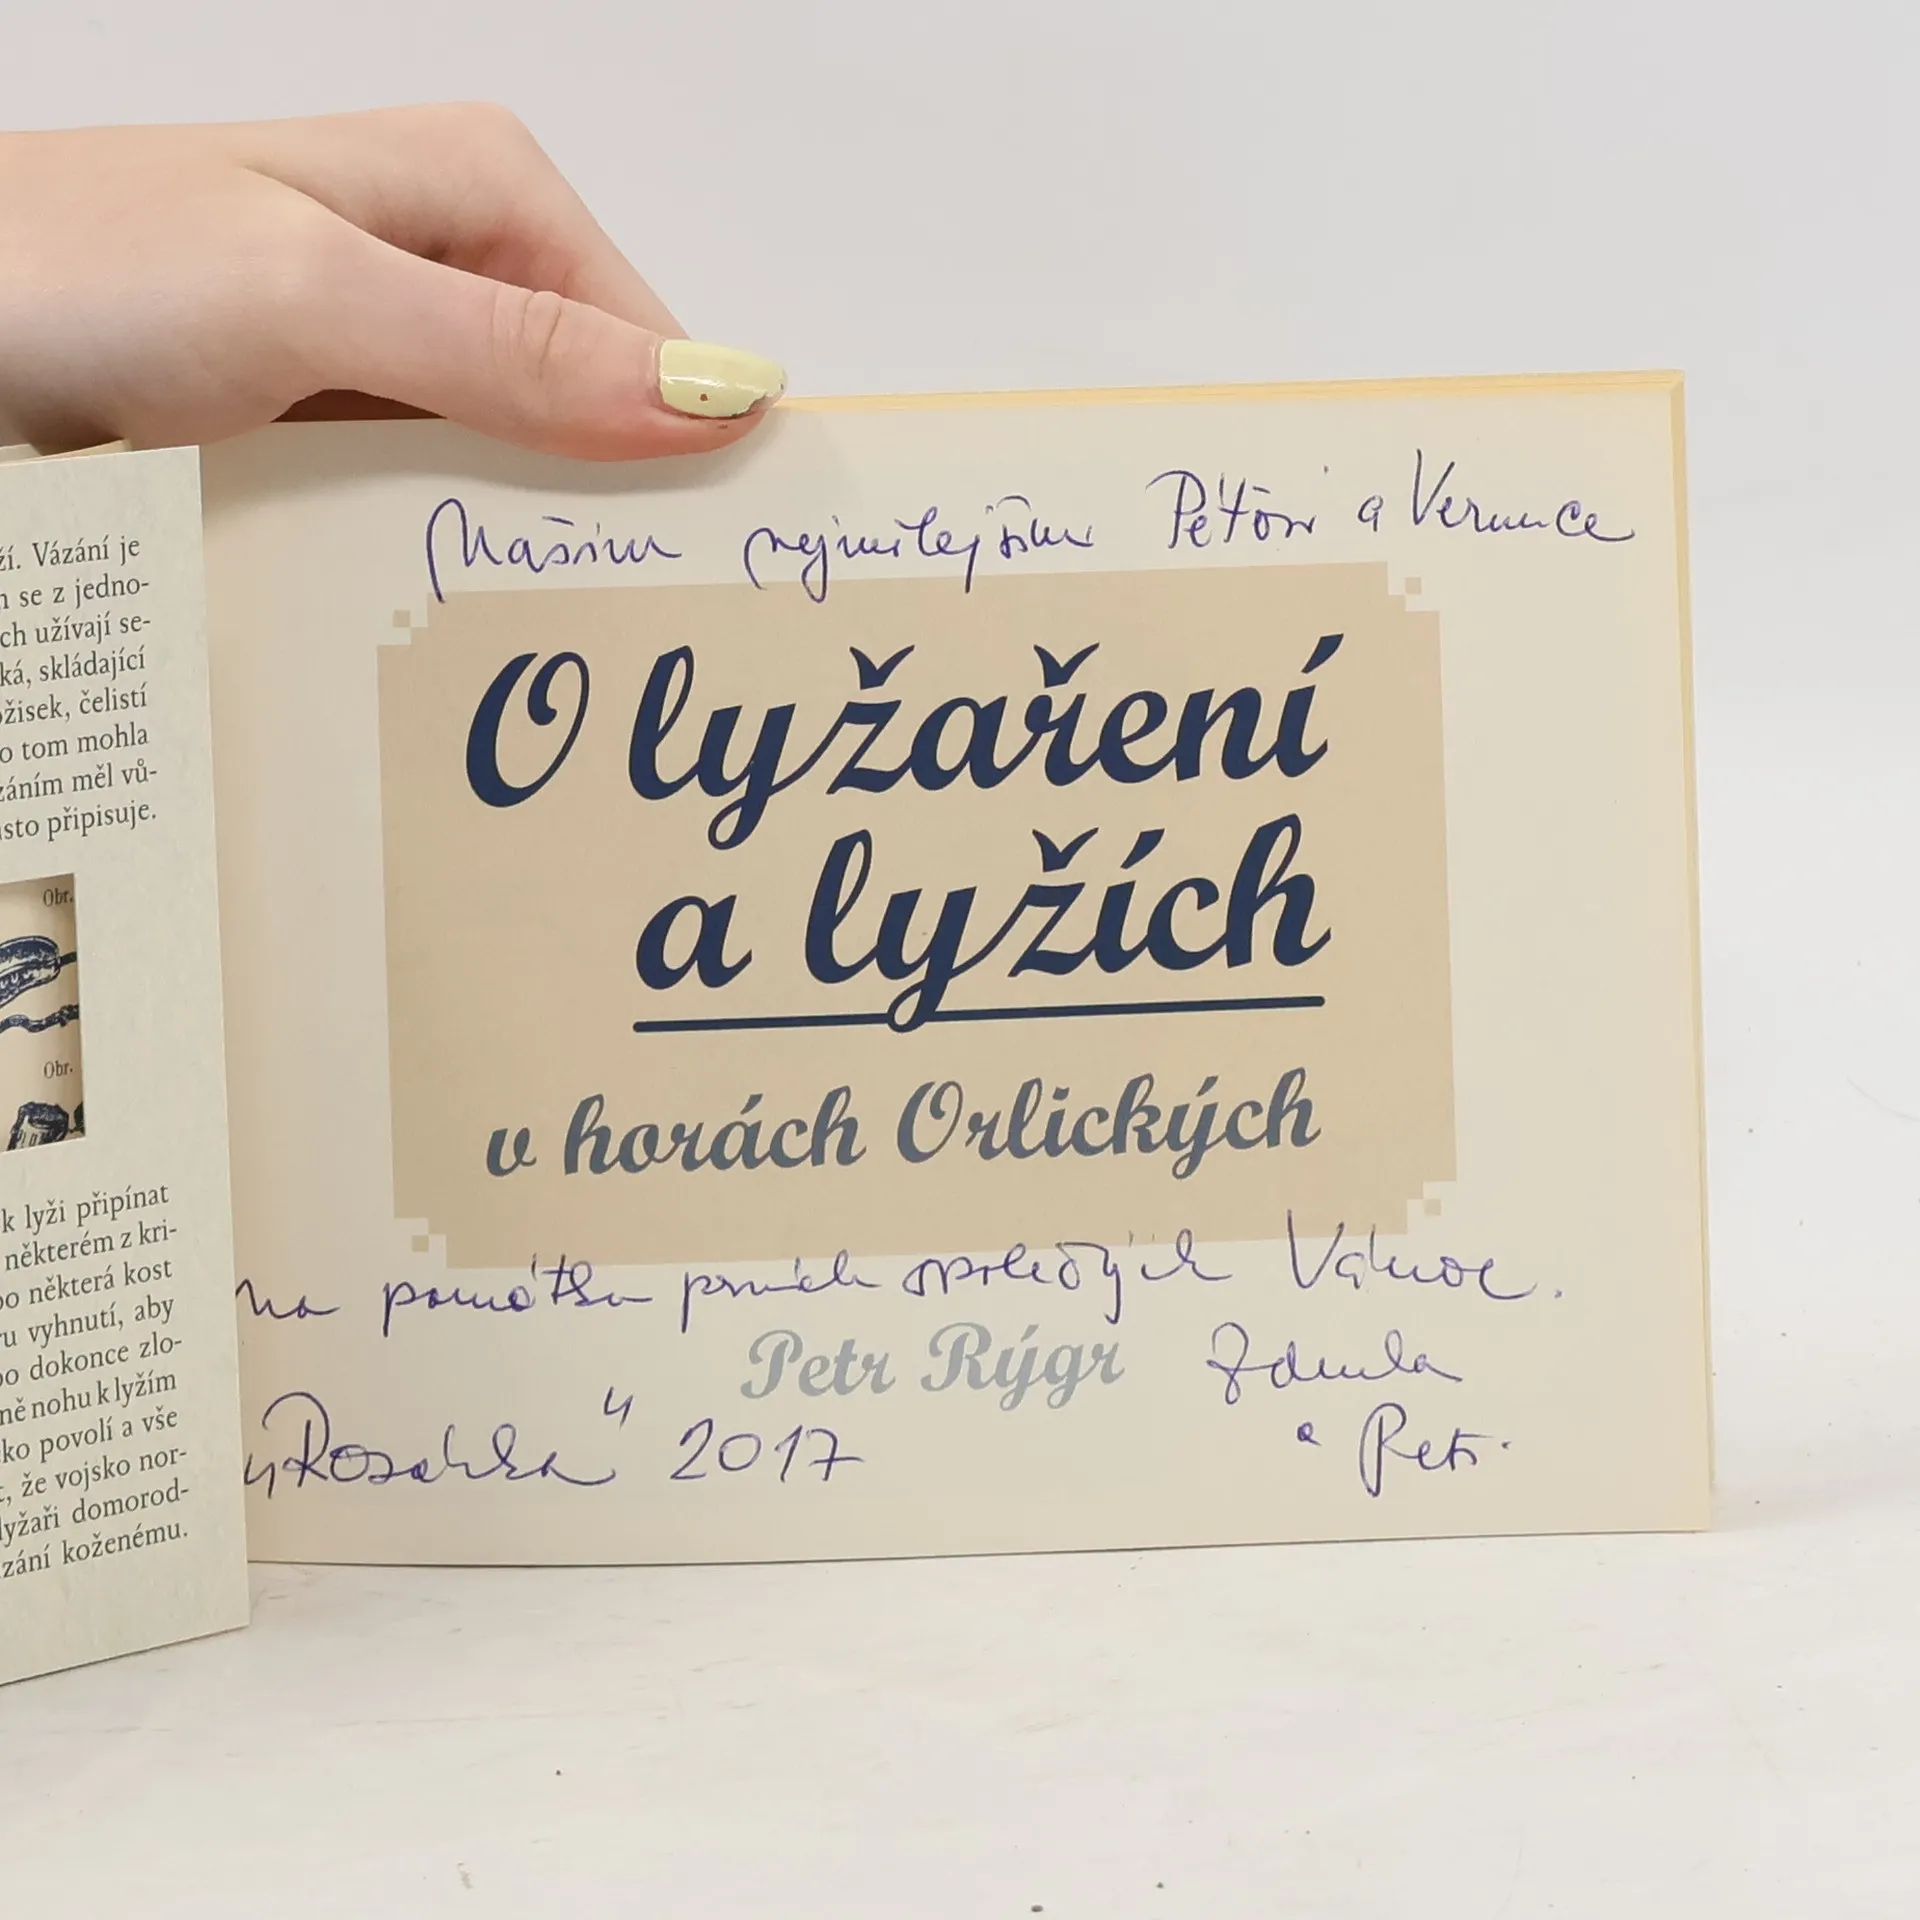 ží. Vázání je
m se z jedno-
ch užívají se-
ká, skládající
ožisek, čelistí
o tom mohla
záním měl vů-
asto připisuje.
Obr.
Obr.
k lyži připínat
některém z kri-
bo některá kost
ru vyhnutí, aby
bo dokonce zlo-
ně nohu k lyžím
ko povolí a vše
, že vojsko nor-
lyžaři domorod-
zání koženému.
Našim nejmilejším Péťovi a Verunce
O lyžaření
a lyžích
v horách Orlických
Na památku prvních společných Vánoc.
Petr Rýgr
Zdenka
„Rosárka“ 2017
a Petr.